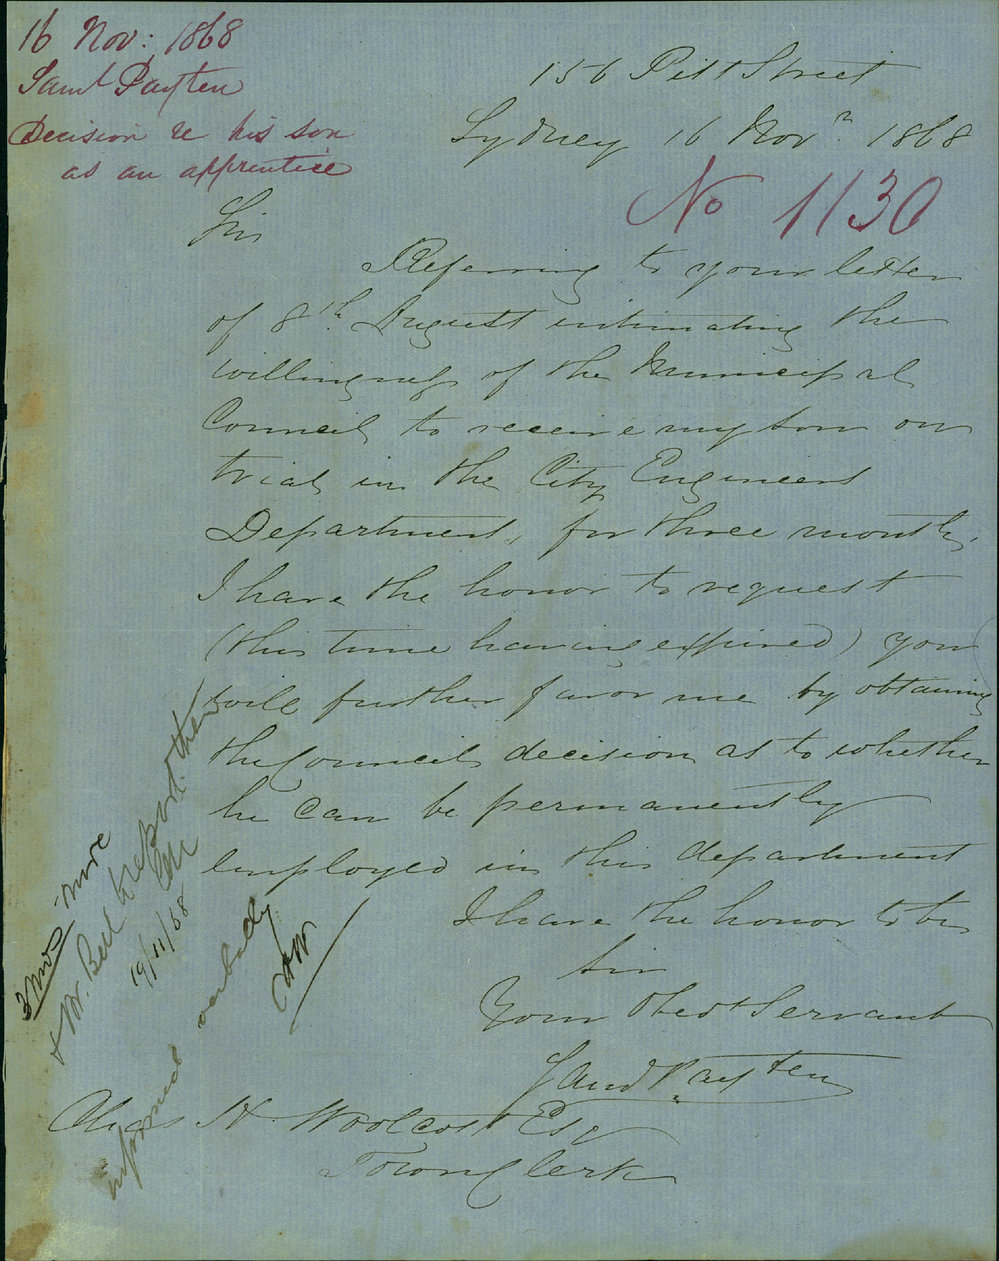 16 Nov: 1868
Saml Payten
Decision re his son
as an apprentice
156 Pitt Street
Sydney 16 Novr. 1868
No 1130
Sir
Referring to your letter
of 8th August intimating the
willingness of the Municipal
Council to receive my son on
trial in the City Engineers
Department, for three months,
I have the honor to request
(this time having expired) you
will further favor me by obtaining
the Councils decision as to whether
he can be permanently
employed in this department
I have the honor to be
Sir
Your Obedt Servant
Saml Payten
Chas H. Woolcott Esq
Town Clerk
3 mos more
& Mr. Bell to report then
19/11/68
informed verbally
CHW